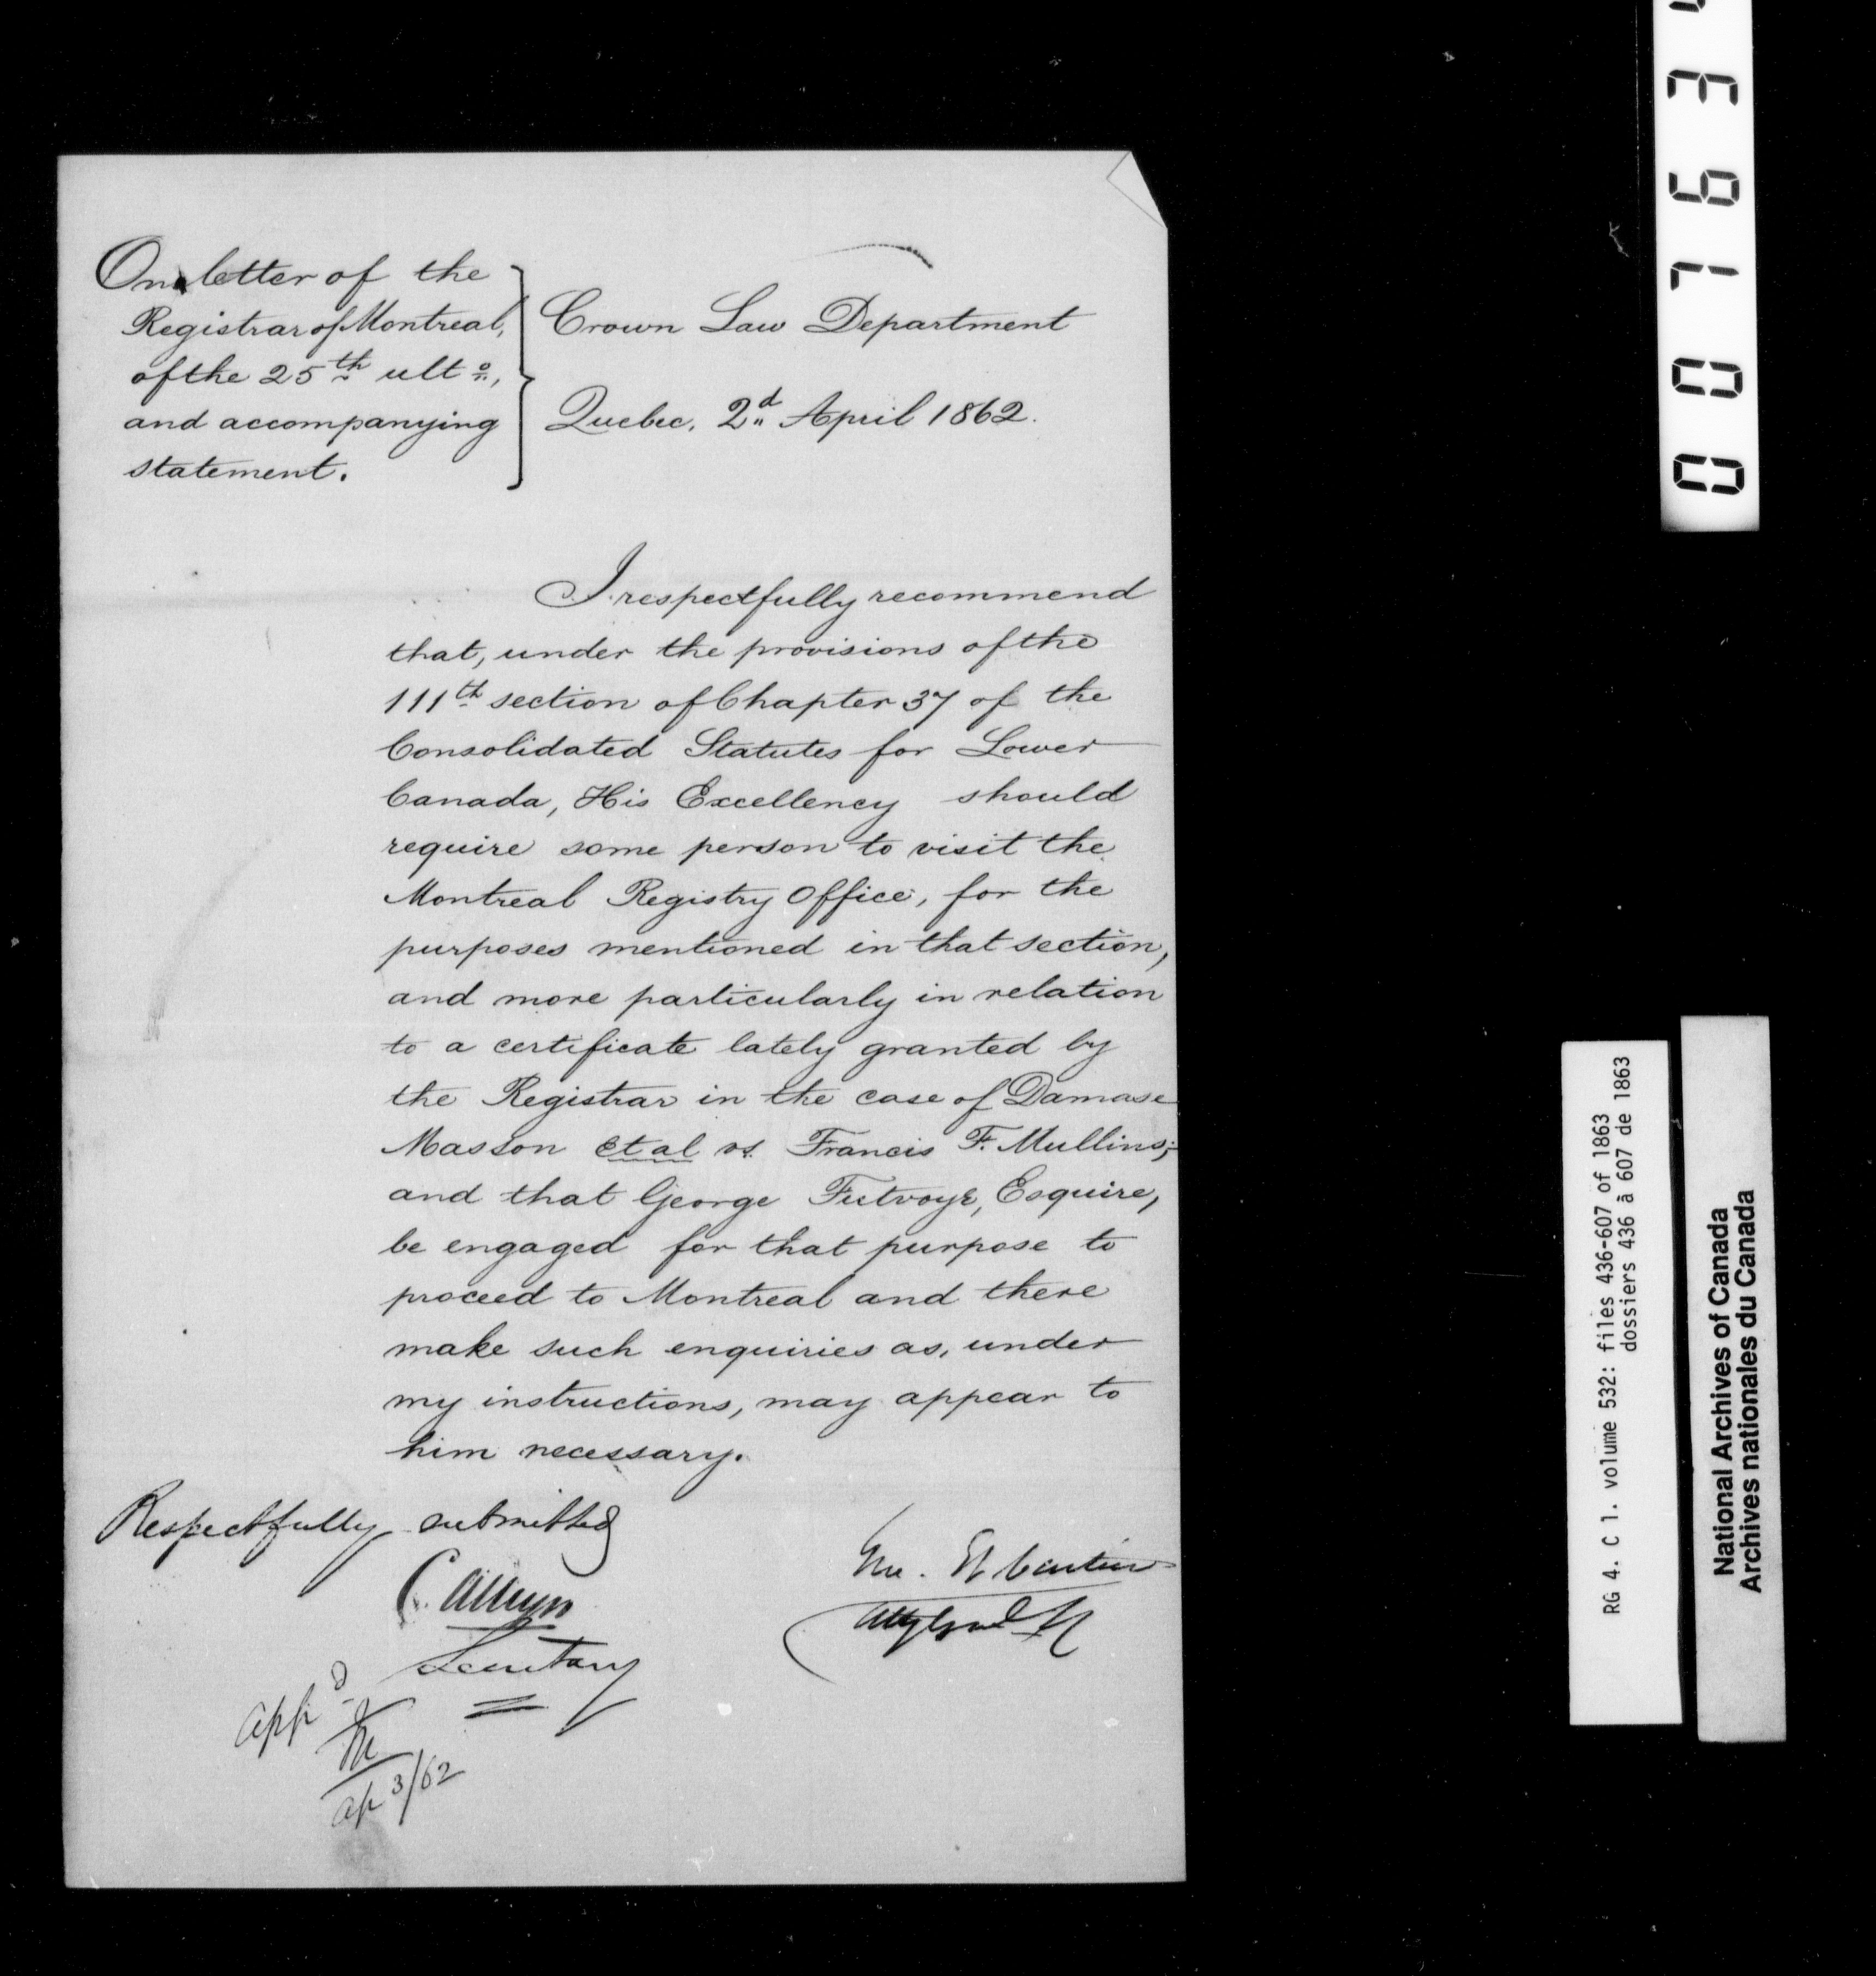 On letter of the
Registrar of Montreal,
of the 25th ulto.,
and accompanying
statement.
Crown Law Department
Quebec, 2d April 1862.
I respectfully recommend
that, under the provisions of the
111th section of Chapter 37 of the
Consolidated Statutes for Lower
Canada, His Excellency should
require some person to visit the
Montreal Registry Office, for the
purposes mentioned in that section,
and more particularly in relation
to a certificate lately granted by
the Registrar in the case of Damase
Masson et al vs. Francis F. Mullins;
and that George Futvoye, Esquire,
be engaged for that purpose to
proceed to Montreal and there
make such enquiries as, under
my instructions, may appear to
him necessary.
Respectfully submitted
C. Alleyn
Secretary
Geo. Et Cartier
Atty Genl
appd
M
Ap 3/62
00763
RG 4. C 1. volume 532: files 436-607 of 1863
dossiers 436 à 607 de 1863
National Archives of Canada
Archives nationales du Canada